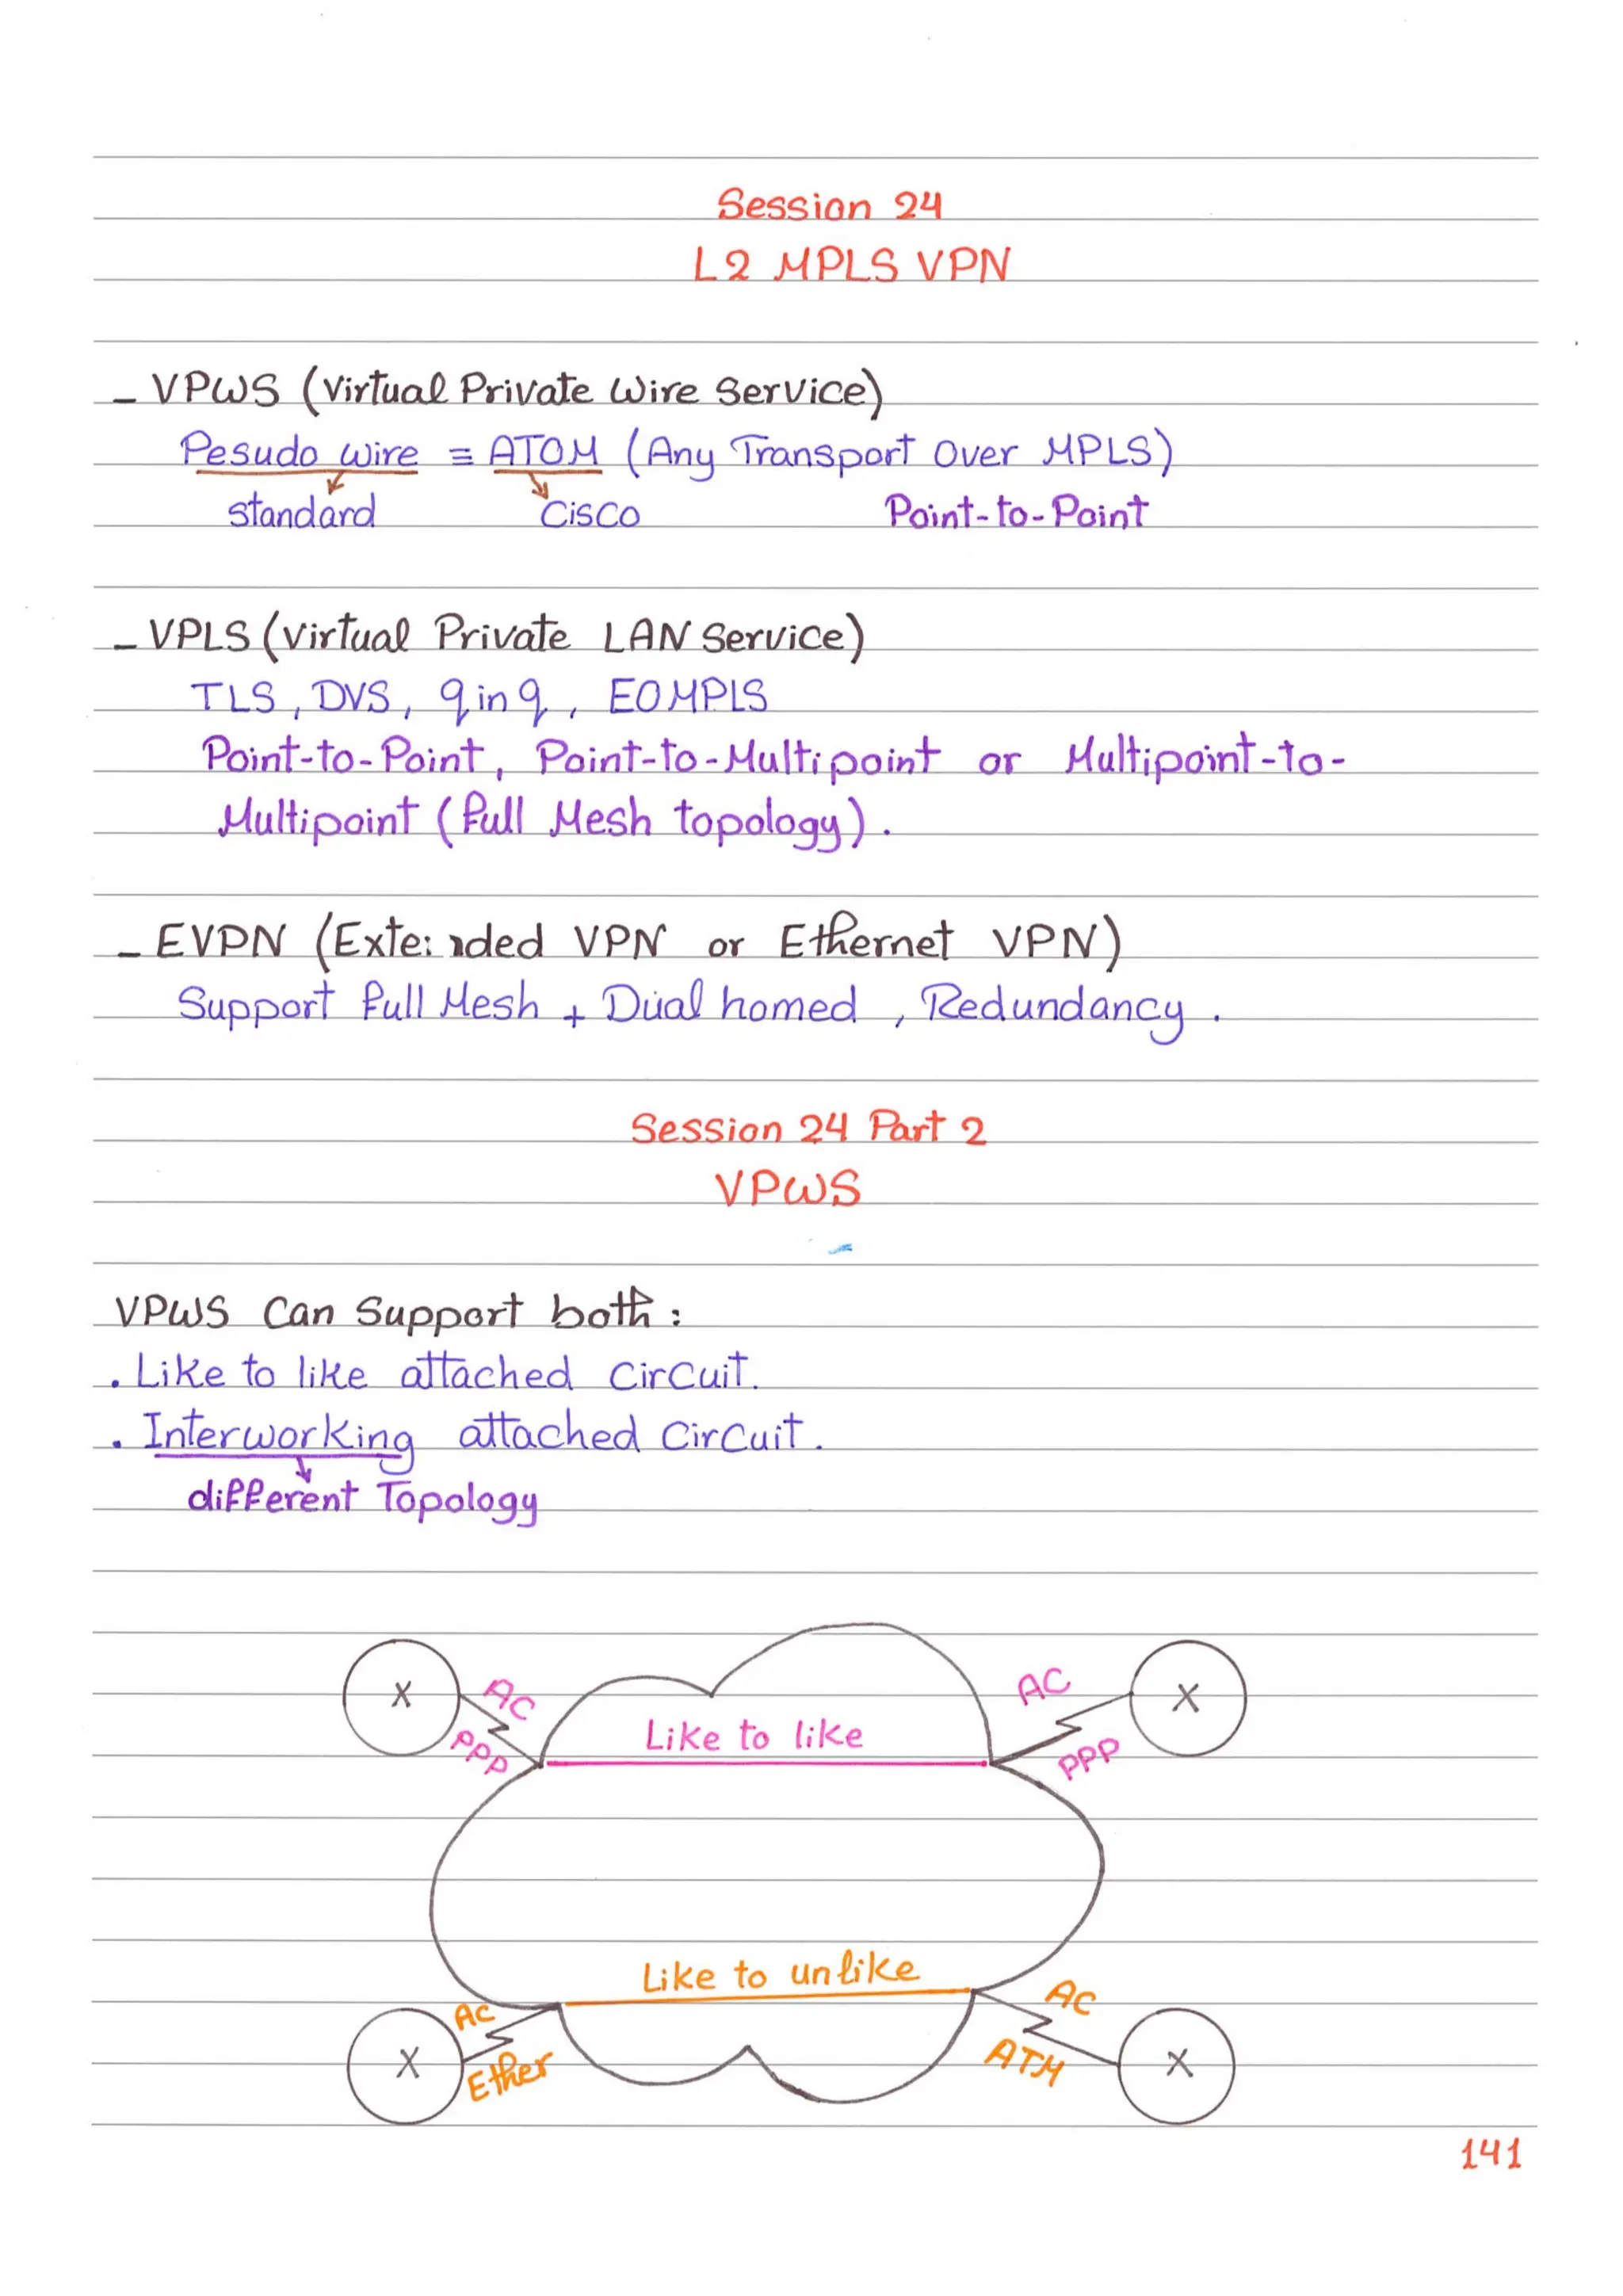 Session 24
L2 MPLS VPN
- VPWS (Virtual Private Wire Service)
Pesudo wire ≡ ATOM (Any Transport Over MPLS)
standard Cisco Point-to-Point
- VPLS (Virtual Private LAN Service)
TLS, DVS, q in q, EOMPLS
Point-to-Point, Point-to-Multipoint or Multipoint-to-
Multipoint (full Mesh topology).
- EVPN (Extended VPN or Ethernet VPN)
Support full Mesh + Dual homed, Redundancy.
Session 24 Part 2
VPWS
VPWS Can Support both:
. Like to like attached Circuit.
. Interworking attached Circuit.
different Topology
X AC AC X
PPP Like to like PPP
Like to unlike
X AC AC X
Ether ATM
141